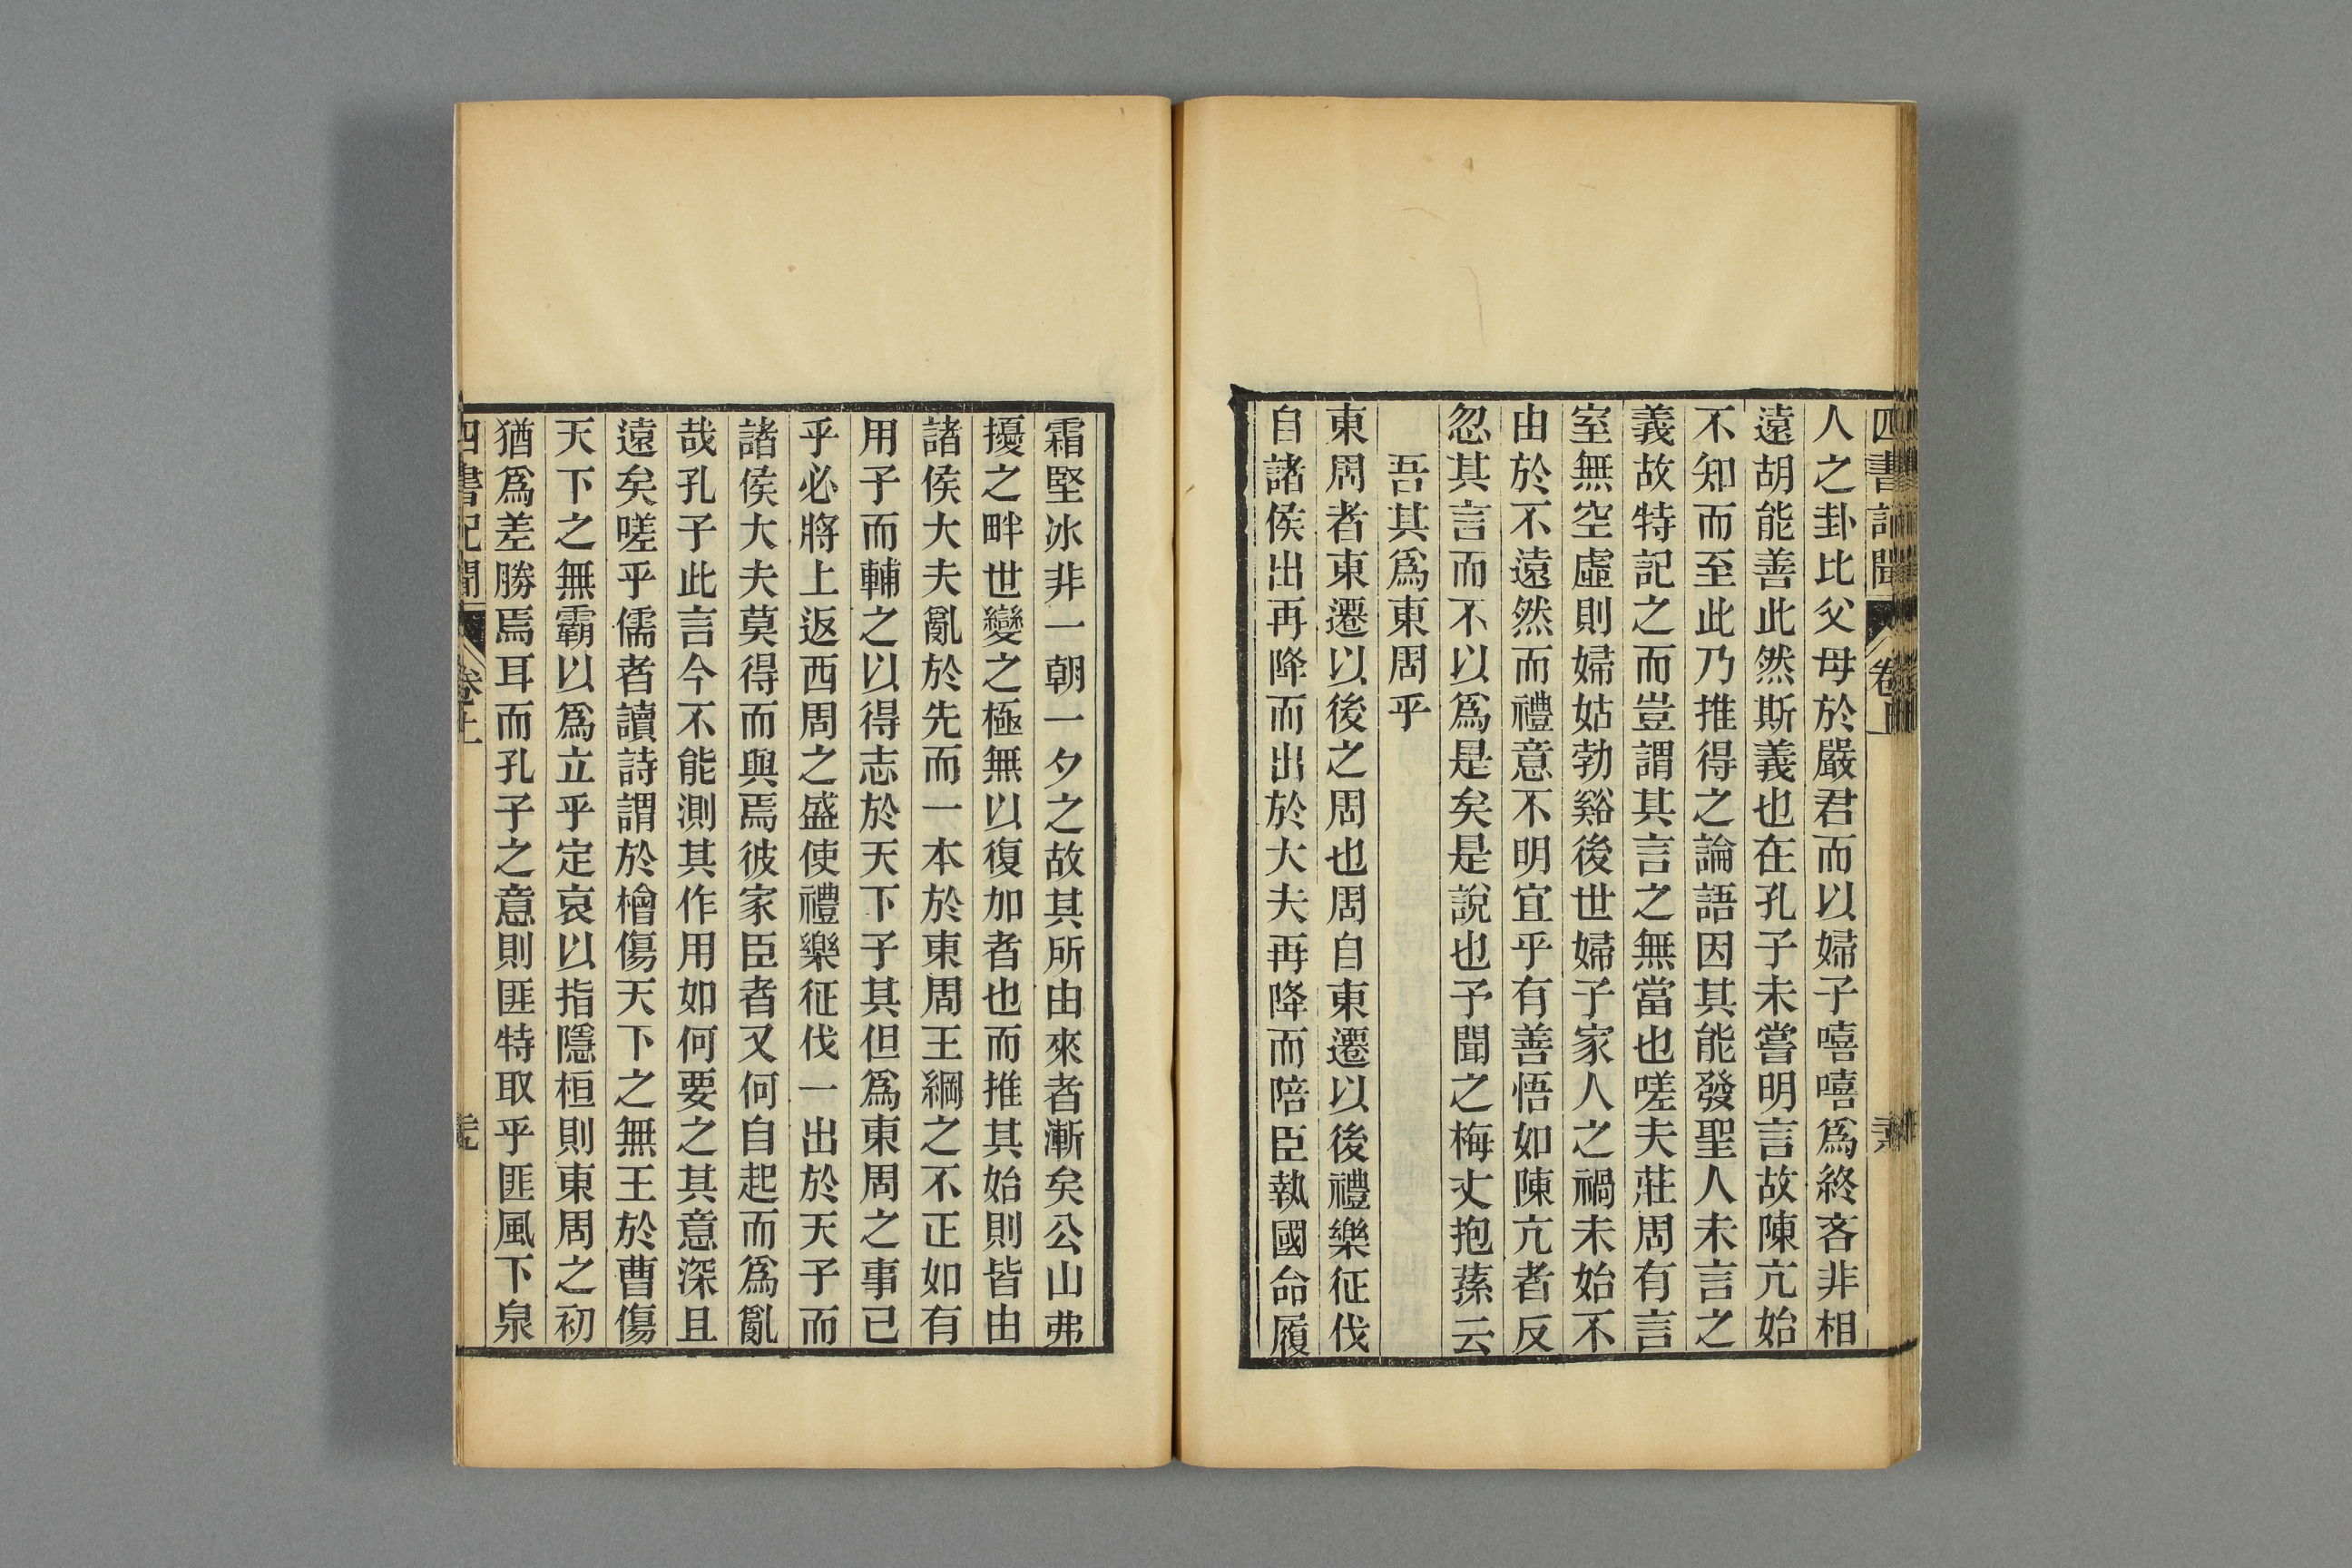 四書記聞 卷上
人之卦比父母於嚴君而以婦子嘻嘻爲終吝非相
遠胡能善此然斯義也在孔子未嘗明言故陳亢始
不知而至此乃推得之論語因其能發聖人未言之
義故特記之而豈謂其言之無當也嗟夫莊周有言
室無空虛則婦姑勃谿後世婦子家人之禍未始不
由於不遠然而禮意不明宜乎有善悟如陳亢者反
忽其言而不以爲是矣是說也予聞之梅丈抱蓀云
吾其爲東周乎
東周者東遷以後之周也周自東遷以後禮樂征伐
自諸侯出再降而出於大夫再降而陪臣執國命履
霜堅冰非一朝一夕之故其所由來者漸矣公山弗
擾之畔世變之極無以復加者也而推其始則皆由
諸侯大夫亂於先而一本於東周王綱之不正如有
用子而輔之以得志於天下子其但爲東周之事已
乎必將上返西周之盛使禮樂征伐一出於天子而
諸侯大夫莫得而與焉彼家臣者又何自起而爲亂
哉孔子此言今不能測其作用如何要之其意深且
遠矣嗟乎儒者讀詩謂於檜傷天下之無王於曹傷
天下之無霸以爲立乎定哀以指隱桓則東周之初
猶爲差勝焉耳而孔子之意則匪特取乎匪風下泉
四書記聞 卷上